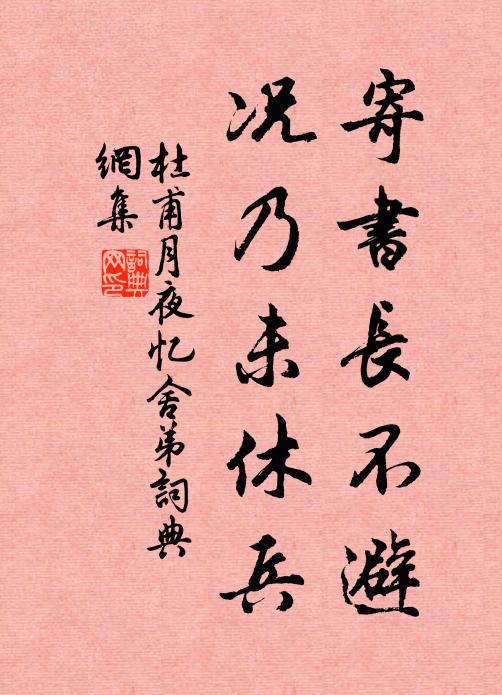 寄書長不避
况乃未休兵
杜甫月夜忆舍弟詞典
網集
詞典
网印